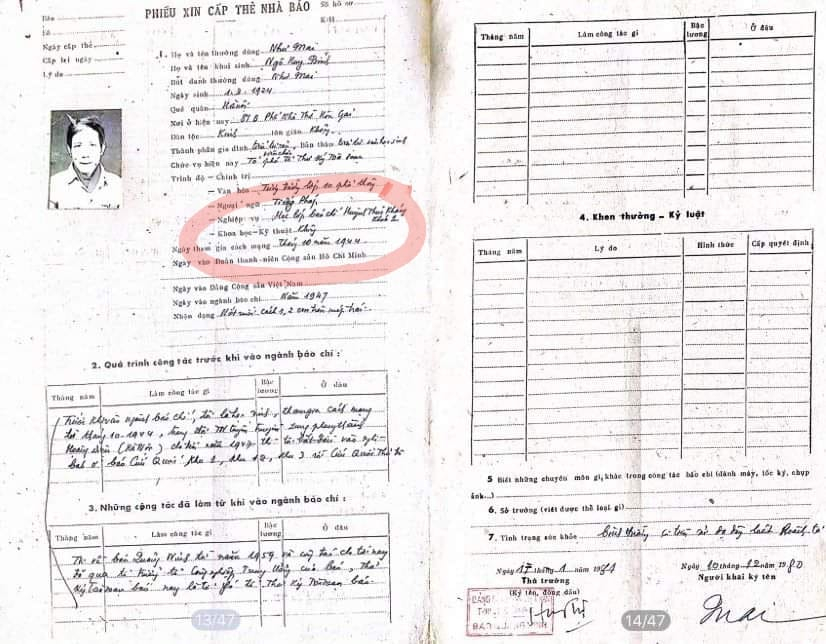 PHIẾU XIN CẤP THẺ NHÀ BÁO
Số hồ sơ
K/H
Số
Ngày cấp thẻ
Cấp lại ngày
Lý do
1. Họ và tên thường dùng Như Mai
Họ và tên khai sinh Ngô Huy Bỉnh
Bút danh thường dùng Như Mai
Ngày sinh 1924
Quê quán Hà Nội
Nơi ở hiện nay Phố
Dân tộc Kinh tôn giáo Không
Thành phần gia đình Bản thân học sinh
Chức vụ hiện nay Tổ phó tổ Thư ký tòa soạn
Trình độ – Chính trị
– Văn hóa lớp 10 phổ thông
– Ngoại ngữ Tiếng Pháp
– Nghiệp vụ Học lớp báo chí Huỳnh Thúc Kháng
Khóa 1
– Khoa học–Kỹ thuật Không
Ngày tham gia cách mạng Tháng 10 năm 1944
Ngày vào Đoàn thanh-niên Cộng sản Hồ Chí Minh
Ngày vào Đảng Cộng sản Việt Nam
Ngày vào ngành báo chí Năm 1947
Nhận dạng Nốt ruồi cách 1,2 trên mép trái
2. Quá trình công tác trước khi vào ngành báo chí :
Tháng năm Làm công tác gì Bậc lương Ở đâu
Trước khi vào ngành báo chí, tôi là học sinh, tham gia cách mạng
từ tháng 10-1944, trong đội Tuyên truyền xung phong thành
Hoàng Diệu (Hà Nội) năm 1947 thì bắt đầu vào nghề
báo ở báo Cứu Quốc khu 2, khu 12, khu 3 và Cứu Quốc Thủ đô
3. Những công tác đã làm từ khi vào ngành báo chí :
Tháng năm Làm công tác gì Bậc lương Ở đâu
về báo Quảng Ninh từ năm 1959 và công tác cho tới nay
đã qua của báo, thư
ký tòa soạn báo nay là tổ phó tổ Thư ký tòa soạn báo
13/47
Tháng năm Làm công tác gì Bậc lương Ở đâu
4. Khen thưởng – Kỷ luật
Tháng năm Lý do Hình thức Cấp quyết định
5 Biết những chuyên môn gì, khác trong công tác báo chí (đánh máy, tốc ký, chụp
ảnh...)
6. Sở trường (viết được thể loại gì)
7. Tình trạng sức khỏe
Ngày 17 tháng 1 năm 1981
Ngày 10 tháng 12 năm 1980
Thủ trưởng
Người khai ký tên
(Ký tên, đóng dấu)
Mai
14/47